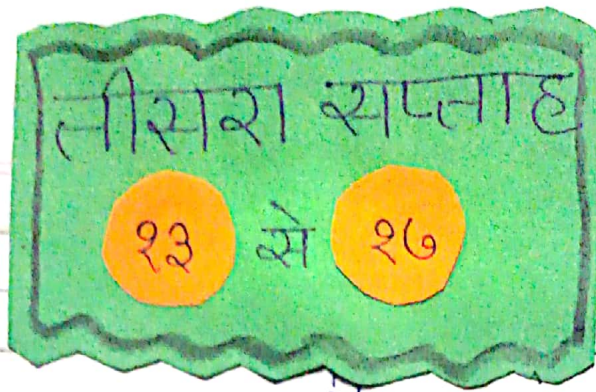 तीसरा सप्ताह
१३ से १७